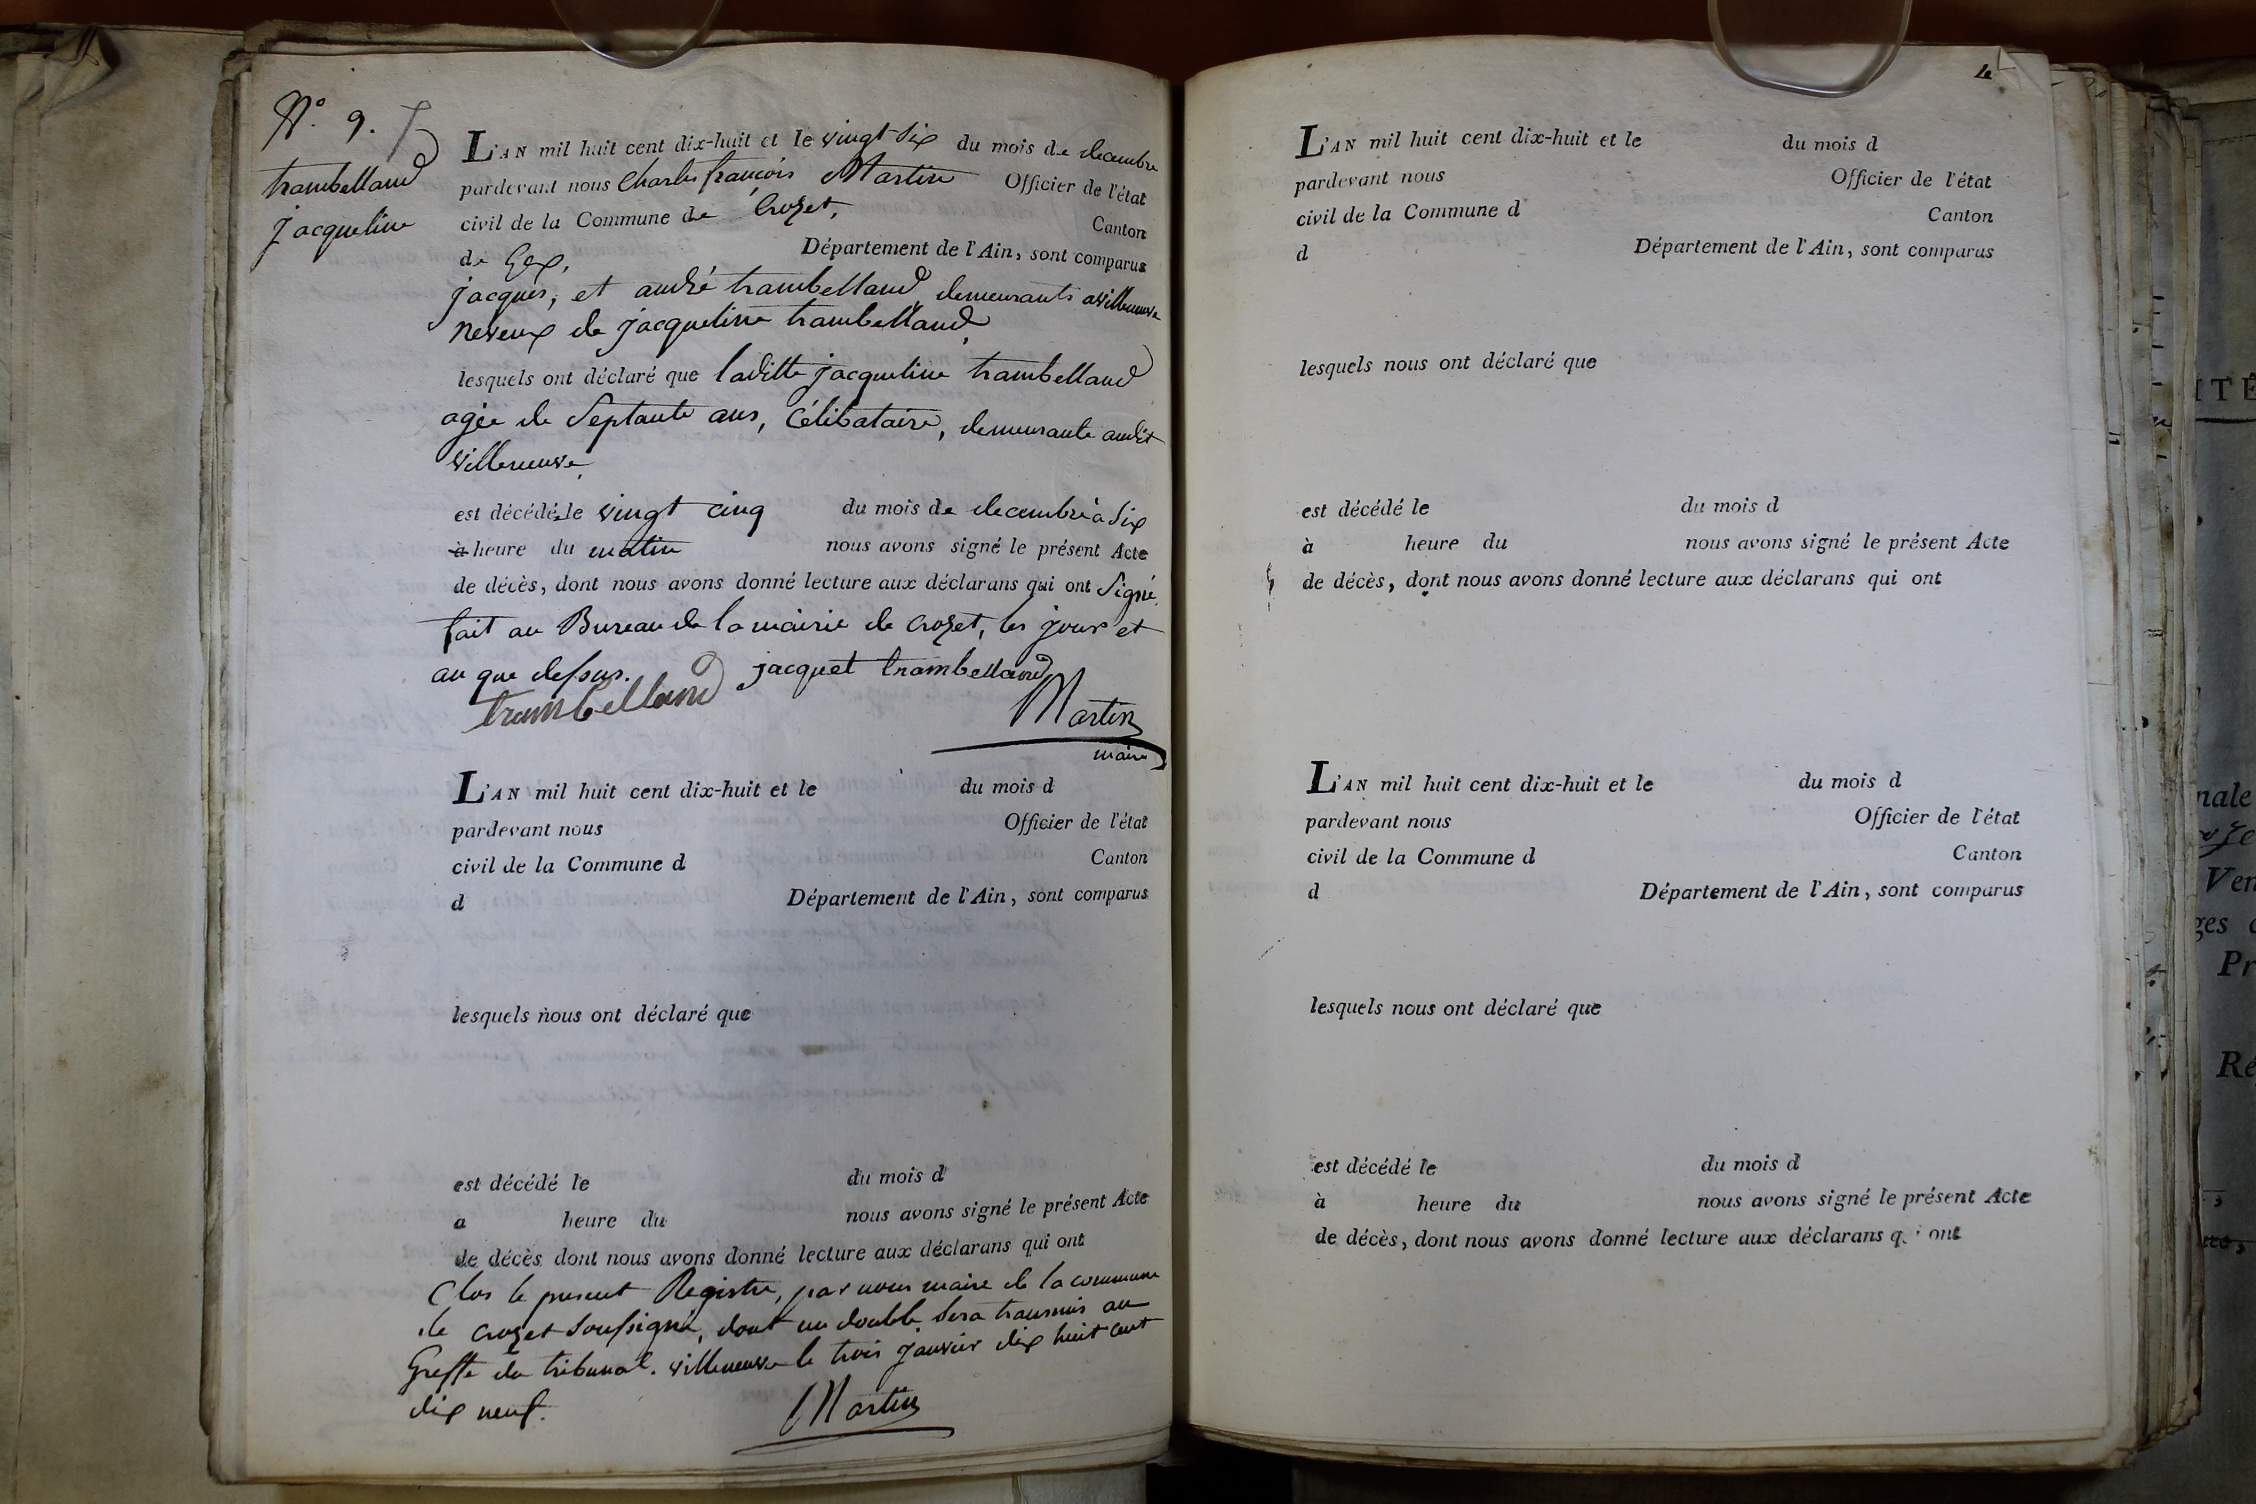 N.° 9.
trambelland
jacqueline
L'AN mil huit cent dix-huit et le vingt six du mois de decembre
pardevant nous Charles françois Martin Officier de l'état
civil de la Commune de Crozet, Canton
de Gex, Département de l'Ain, sont comparus
jacques, et andré trambelland demeurants a villeneuve
neveux de jacqueline trambelland,
lesquels ont déclaré que laditte jacqueline trambelland
agée de Septante ans, Célibataire, demeurante audit
villeneuve,
est décédé le vingt cinq du mois de decembre à six
à heure du matin nous avons signé le présent Acte
de décès, dont nous avons donné lecture aux déclarans qui ont Signé.
fait au Bureau de la mairie de crozet, les jour et
an que dessus. jacquet trambelland
trambelland Martin
maire
L'AN mil huit cent dix-huit et le du mois d
pardevant nous Officier de l'état
civil de la Commune d Canton
d Département de l'Ain, sont comparus
lesquels nous ont déclaré que
est décédé le du mois d
a heure du nous avons signé le présent Acte
de décès dont nous avons donné lecture aux déclarans qui ont
Clos le present Registre, par nous maire de la commune
de crozet soussigné, dont un double sera transmis au
Greffe du tribunal. villeneuve le trois janvier dix huit cent
dix neuf. Martin
L'AN mil huit cent dix-huit et le du mois d
pardevant nous Officier de l'état
civil de la Commune d Canton
d Département de l'Ain, sont comparus
lesquels nous ont déclaré que
est décédé le du mois d
à heure du nous avons signé le présent Acte
de décès, dont nous avons donné lecture aux déclarans qui ont
L'AN mil huit cent dix-huit et le du mois d
pardevant nous Officier de l'état
civil de la Commune d Canton
d Département de l'Ain, sont comparus
lesquels nous ont déclaré que
est décédé le du mois d
à heure du nous avons signé le présent Acte
de décès, dont nous avons donné lecture aux déclarans q i ont
ITÉ
nale
Ven
ges
Pr
Ré